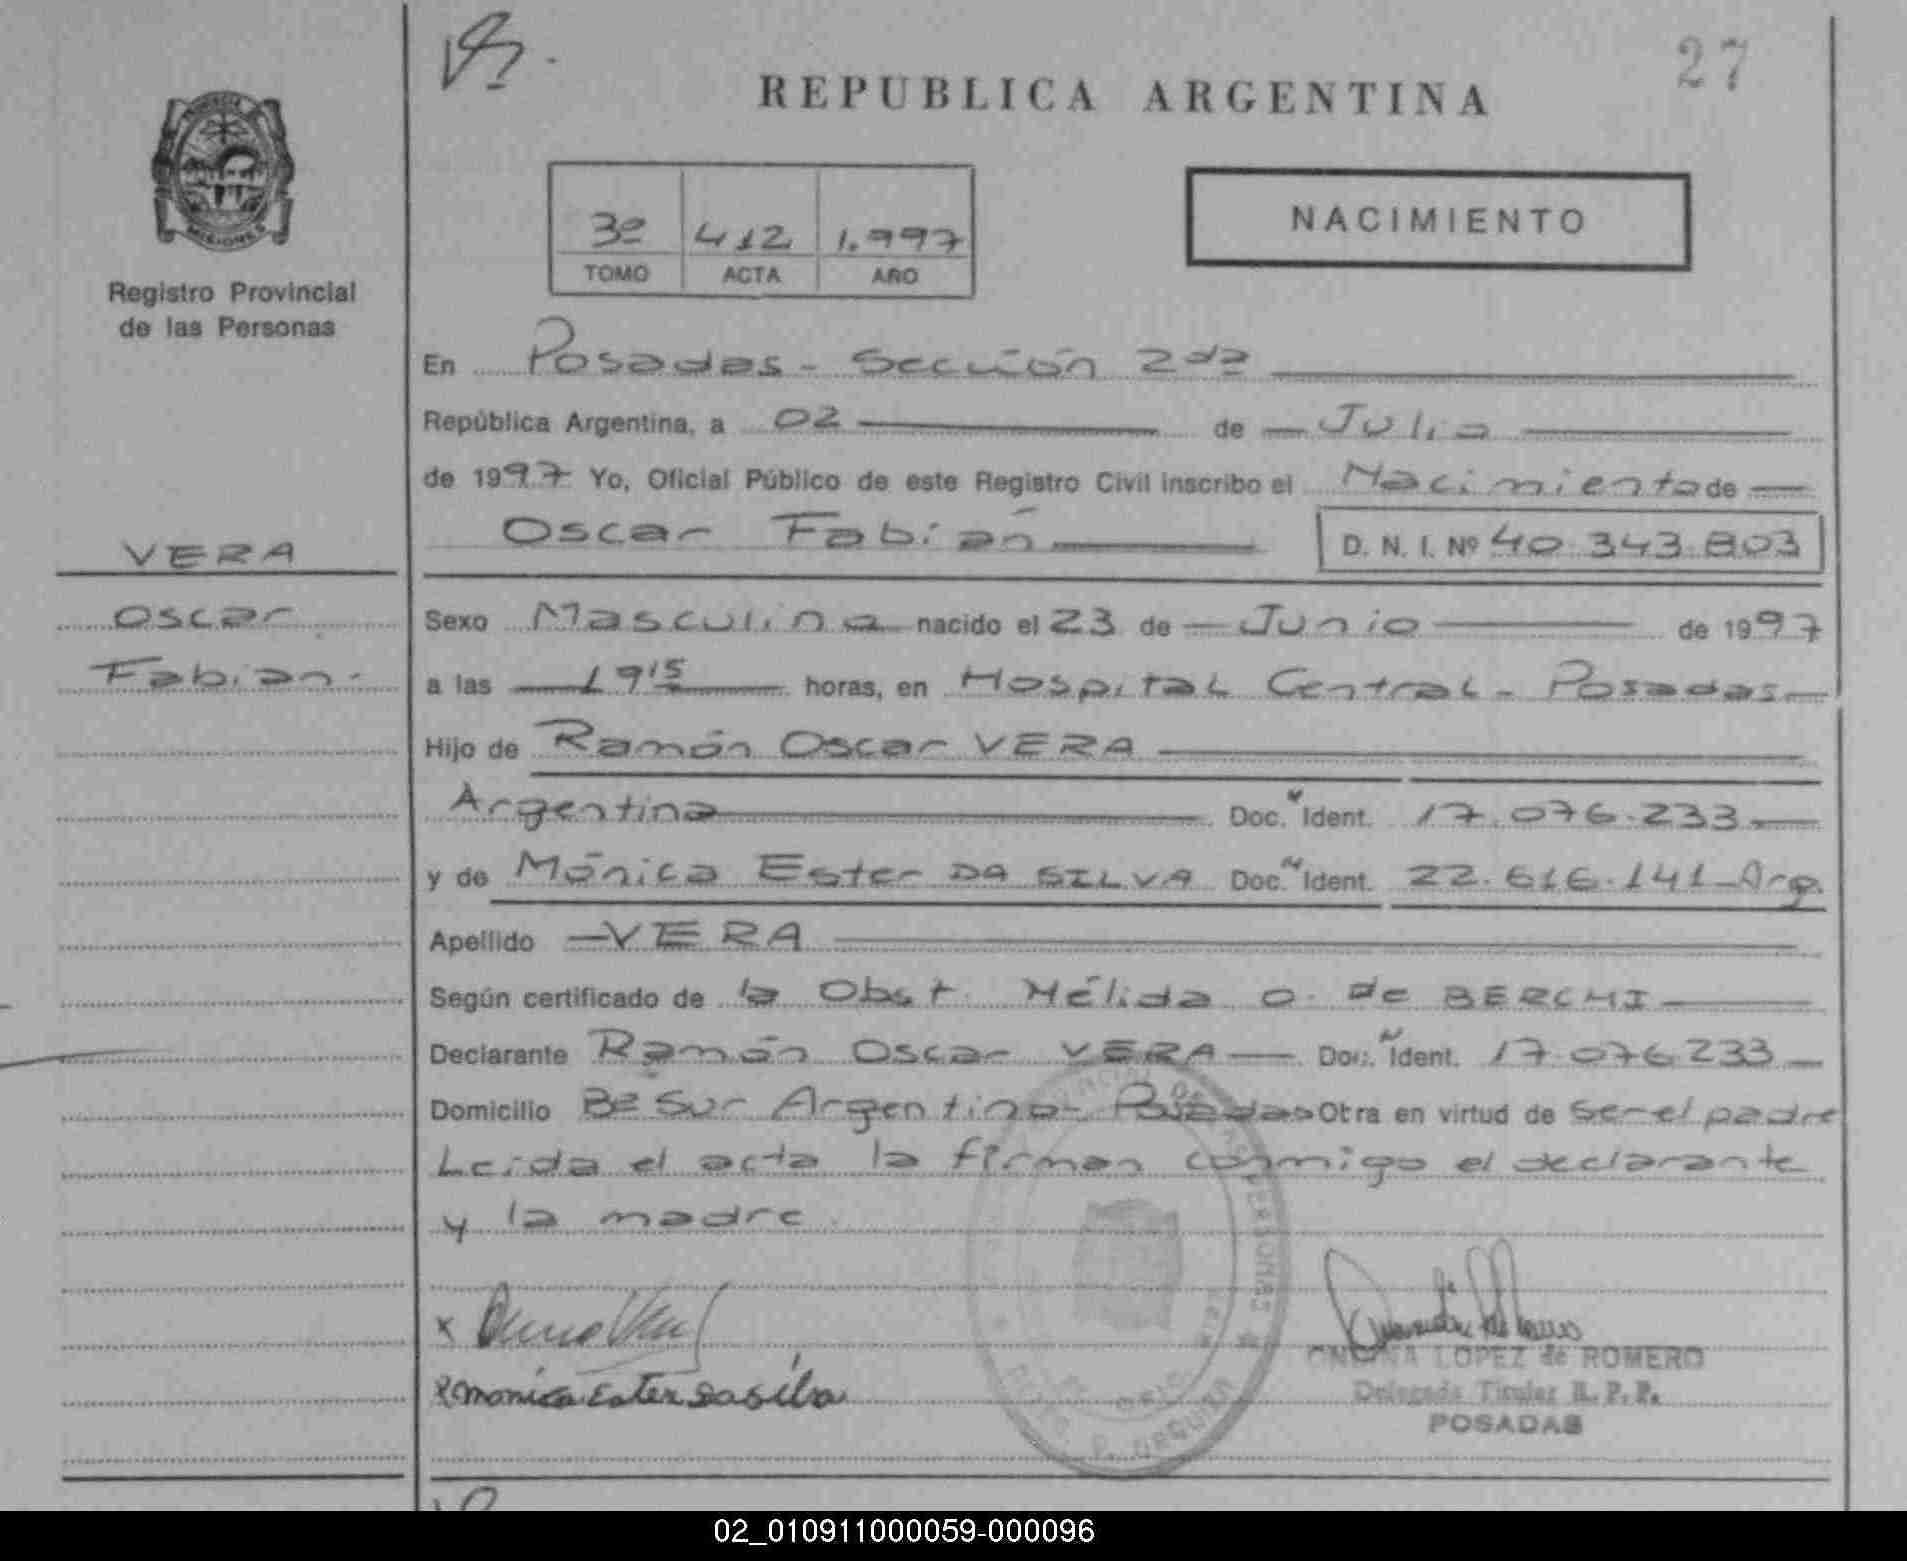 27
REPUBLICA ARGENTINA
MISIONES
Registro Provincial
de las Personas
3º 412 1.997
TOMO ACTA AÑO
NACIMIENTO
En Posadas - Sección 2da
República Argentina, a 02 de Julio
de 1997 Yo, Oficial Público de este Registro Civil inscribo el Nacimiento de
VERA
Oscar Fabián D. N. I. Nº 40.343.803
Oscar
Fabian.
Sexo Masculino nacido el 23 de Junio de 1997
a las 19 15 horas, en Hospital Central - Posadas
Hijo de Ramón Oscar VERA
Argentino Doc. Ident. 17.076.233
y de Mónica Ester DA SILVA Doc. Ident. 22.616.141 - Arg.
Apellido VERA
Según certificado de la Obst. Nélida O. de BERCHI
Declarante Ramón Oscar VERA Doc. Ident. 17.076.233
Domicilio Bº Sur Argentino - Posadas Otra en virtud de ser el padre
Leída el acta la firman conmigo el declarante
y la madre.
x
x monica Ester dasilva
LOPEZ de ROMERO
Delegada Titular R. P. P.
POSADAS
02_010911000059-000096